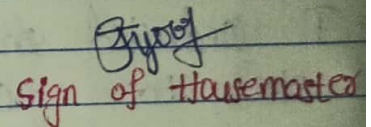 Sign of Housemaster